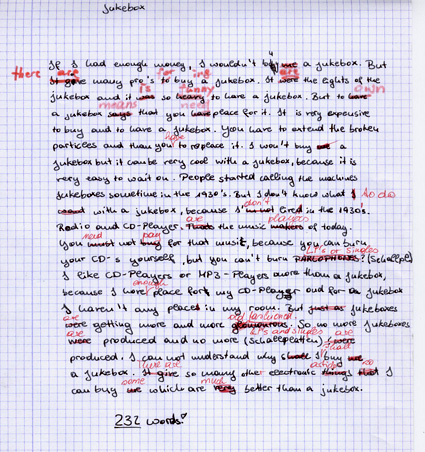 Jukebox
If I had enough money, I wouldn't buy me a jukebox. But
there are for ing are
It give many pro's to buy a jukebox. It were the lights of the
is funny own
jukebox and it was so heavy to have a jukebox. But to have
means need
a jukebox says that you have place for it. It is very expensive
to buy and to have a jukebox. You have to extend the broken
have
particles and than you to replace it. I won't buy me a
jukebox but it can be very cool with a jukebox, because it is
very easy to wait on. People started calling the machines
Jukeboxes sometime in the 1930's. But I don't know what I to do
don't
with a jukebox, because I'm not lired in the 1930s.
are players
Radio and CD-Player. Thats the music makers of today.
need pay
You must not buy for that music, because you can burn
LP's or singles
your CD-s yourself, but you can't burn PARCOPHONES? (Schallpl)
I like CD-Players or MP3-Players more than a jukebox,
enough
because I have place for my CD-Player and for a jukebox
I haven't any places in my room. But just as jukeboxes
are old fashioned
were getting more and more glamourous. So no more jukeboxes
are LPs and singles are
were produced and no more (Schallplatten) were
produced. I can not understand why I buy me
there are
a jukebox. It give so many other electronic things that I
some much
can buy me which are very better than a jukebox.
232 words!